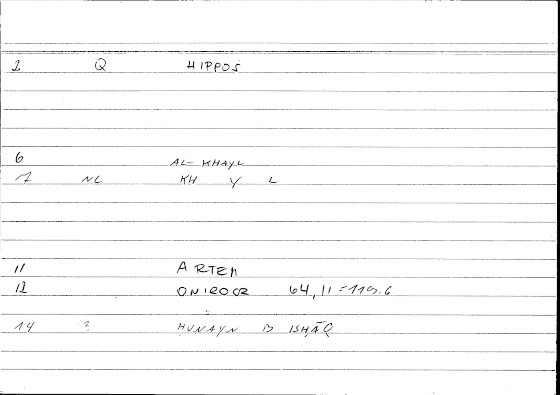 1 Q HIPPOS
6 AL-KHAYL
7 NL KH Y L
11 ARTEM
12 ONIROCR 64,11=119.6
14 ? ḤUNAYN B. ISḤĀQ